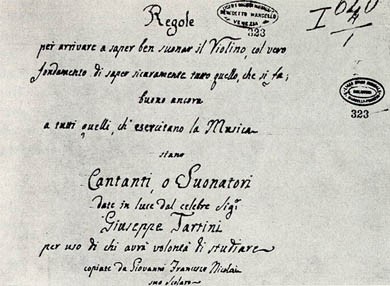 Regole
per arrivare a saper ben suonar il Violino, col vero
fondamento di saper sicuramente tutto quello, che si fa;
buono ancora
a tutti quelli, ch'esercitano la Musica
siano
Cantanti, o Suonatori
date in luce dal celebre Sigr
Giuseppe Tartini
per uso di chi avrà volontà di studiare
copiate da Giovanni Francesco Nicolai
suo Scolaro
BENEDETTO MARCELLO
VENEZIA
323
I
1
323